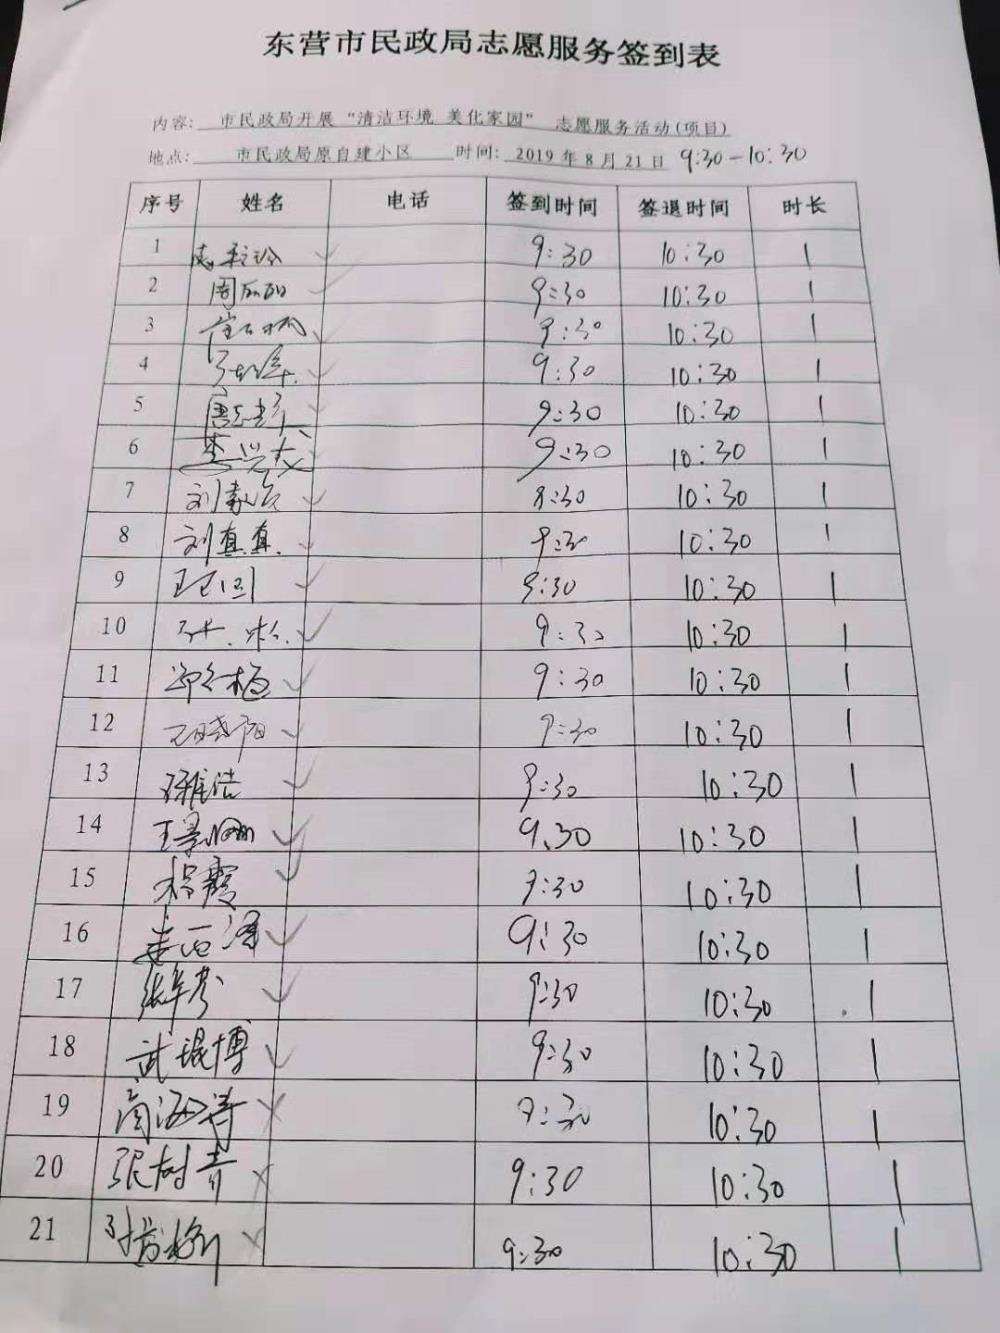 东营市民政局志愿服务签到表
内容: 市民政局开展“清洁环境 美化家园” 志愿服务活动(项目)
地点: 市民政局原自建小区 时间: 2019 年 8 月 21 日 9:30-10:30
序号 姓名 电话 签到时间 签退时间 时长
1 9:30 10:30 1
2 9:30 10:30 1
3 9:30 10:30 1
4 9:30 10:30 1
5 9:30 10:30 1
6 9:30 10:30 1
7 刘 10:30 1
8 刘真真 9:30 10:30 1
9 9:30 10:30 1
10 9:30 10:30 1
11 9:30 10:30 1
12 王晓阳 9:30 10:30 1
13 9:30 10:30 1
14 王 9.30 10:30 1
15 霞 9:30 10:30 1
16 9:30 10:30 1
17 张 9:30 10:30 1
18 武琨博 9:30 10:30 1
19 9:30 10:30 1
20 张树青 9:30 10:30 1
21 9:30 10:30 1